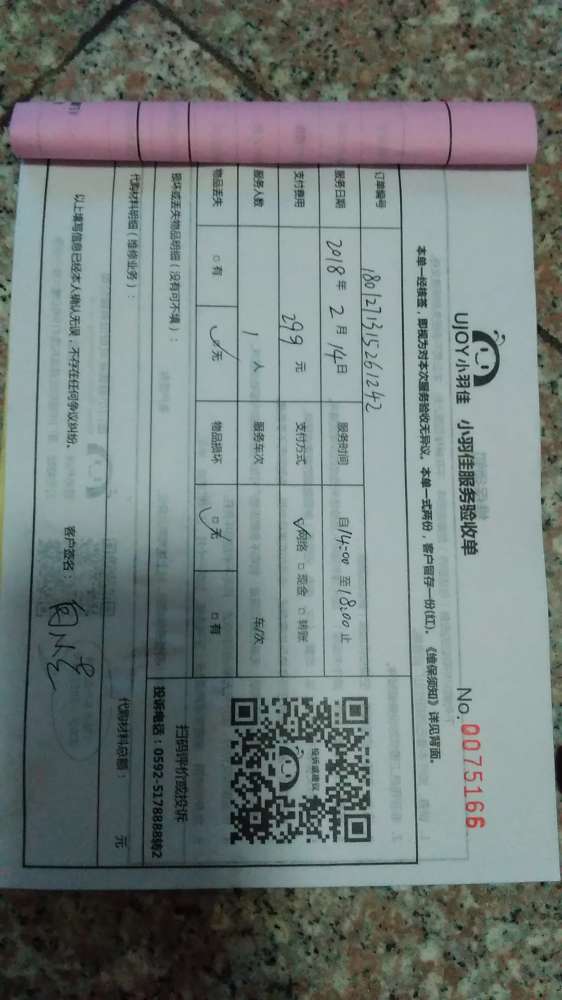 UJOY小羽佳 小羽佳服务验收单
No. 0075166
本单一经核签，即视为对本次服务验收无异议。本单一式两份，客户留存一份(红)。《维保须知》详见背面。
订单编号 180127131526 1242
服务日期 2018 年 2 月 14 日 服务时间 自 14:00 至 18:00 止
支付费用 299 元 支付方式 ✓网络 □ 现金 □ 转账
服务人数 1 人 服务车次 车/次
物品丢失 □ 有 ✓无 物品损坏 □ 无 ✓ □ 有
损坏或丢失物品明细（没有可不填）：
投诉或建议
扫码评价或投诉
投诉电话：0592-5178888转2
代购材料明细（维修业务）： 代购材料总额： 元
以上填写信息已经本人确认无误，不存在任何争议纠纷。 客户签名：